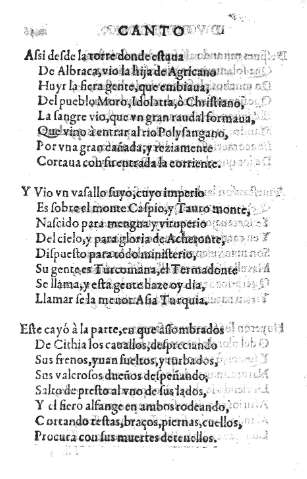 CANTO
Assi desde la torre donde estaua
De Albraca, vio la hija de Agricano
Huyr la fiera gente, que embiaua,
Del pueblo Moro, Idolatra, ò Christiano,
La sangre vio, que vn gran raudal formaua,
Que vino à entrar al rio Polysangano,
Por vna gran cañada, y reziamente
Cortaua con su entrada la corriente.
Y Vio vn vasallo suyo, cuyo imperio
Es sobre el monte Caspio, y Tauro monte,
Nascido para mengua, y vituperio
Del cielo, y para gloria de Acheronte,
Dispuesto para todo ministerio,
Su gente es Turcomana, el Termadonte
Se llama, y esta gente haze oy dia,
Llamarse la menor Asia Turquia.
Este cayò à la parte, en que assombrados
De Cithia los cauallos, despreciando
Sus frenos, yuan sueltos, y turbados,
Sus valerosos dueños despeñando,
Salto de presto al vno de sus lados,
Y el fiero alfange en ambos rodeando,
Cortando testas, braços, piernas, cuellos,
Procura con sus muertes detenellos.